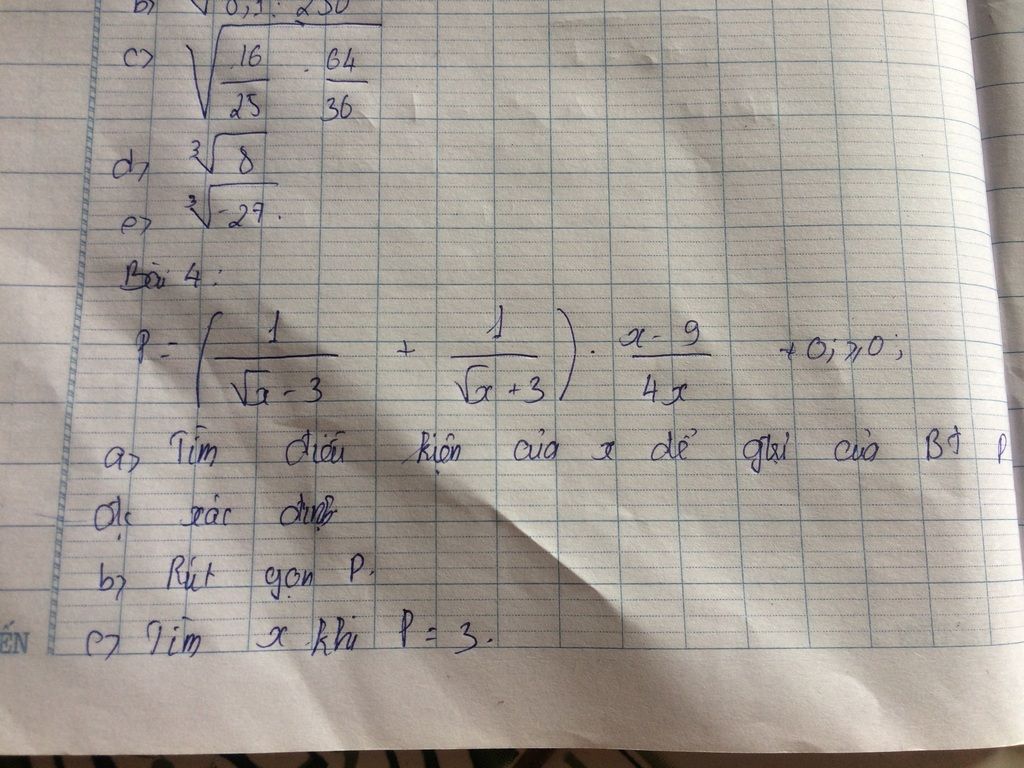 b) √
c) √(16/25 · 64/36)
d) ³√8
e) ³√-27.
Bài 4:
P = (1/(√x - 3) + 1/(√x + 3)) · (x - 9)/4x
a) Tìm điều kiện của x để giá trị của Bt P
đc xác định
b) Rút gọn P.
c) Tìm x khi P = 3.
ẾN